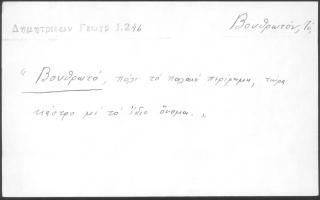 Δημητριεων Γεωγρ 1.246
Βουθρωτόν, το
"Βουθρωτό, πόλι τό παλαιό περίφημη, τώρα
κάστρο μέ τό ἴδιο ὄνομα."